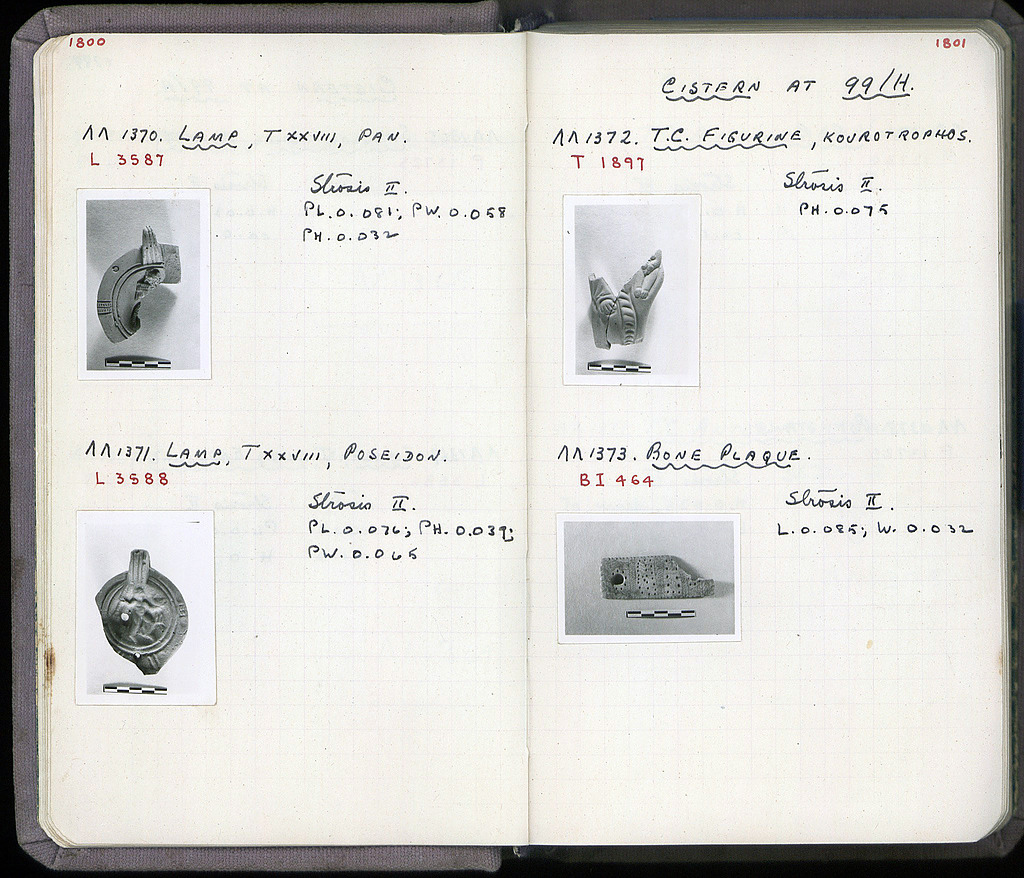 1800
ΛΛ 1370. LAMP, T XXVIII, PAN.
L 3587
Strōsis II.
PL. 0.081; PW. 0.058
PH. 0.032
ΛΛ 1371. LAMP, T XXVIII, POSEIDON.
L 3588
Strōsis II.
PL. 0.076; PH. 0.039;
PW. 0.065
1801
CISTERN AT 99/H.
ΛΛ 1372. T.C. FIGURINE, KOUROTROPHOS.
T 1897
Strōsis II.
PH. 0.075
ΛΛ 1373. BONE PLAQUE.
BI 464
Strōsis II.
L. 0.085; W. 0.032